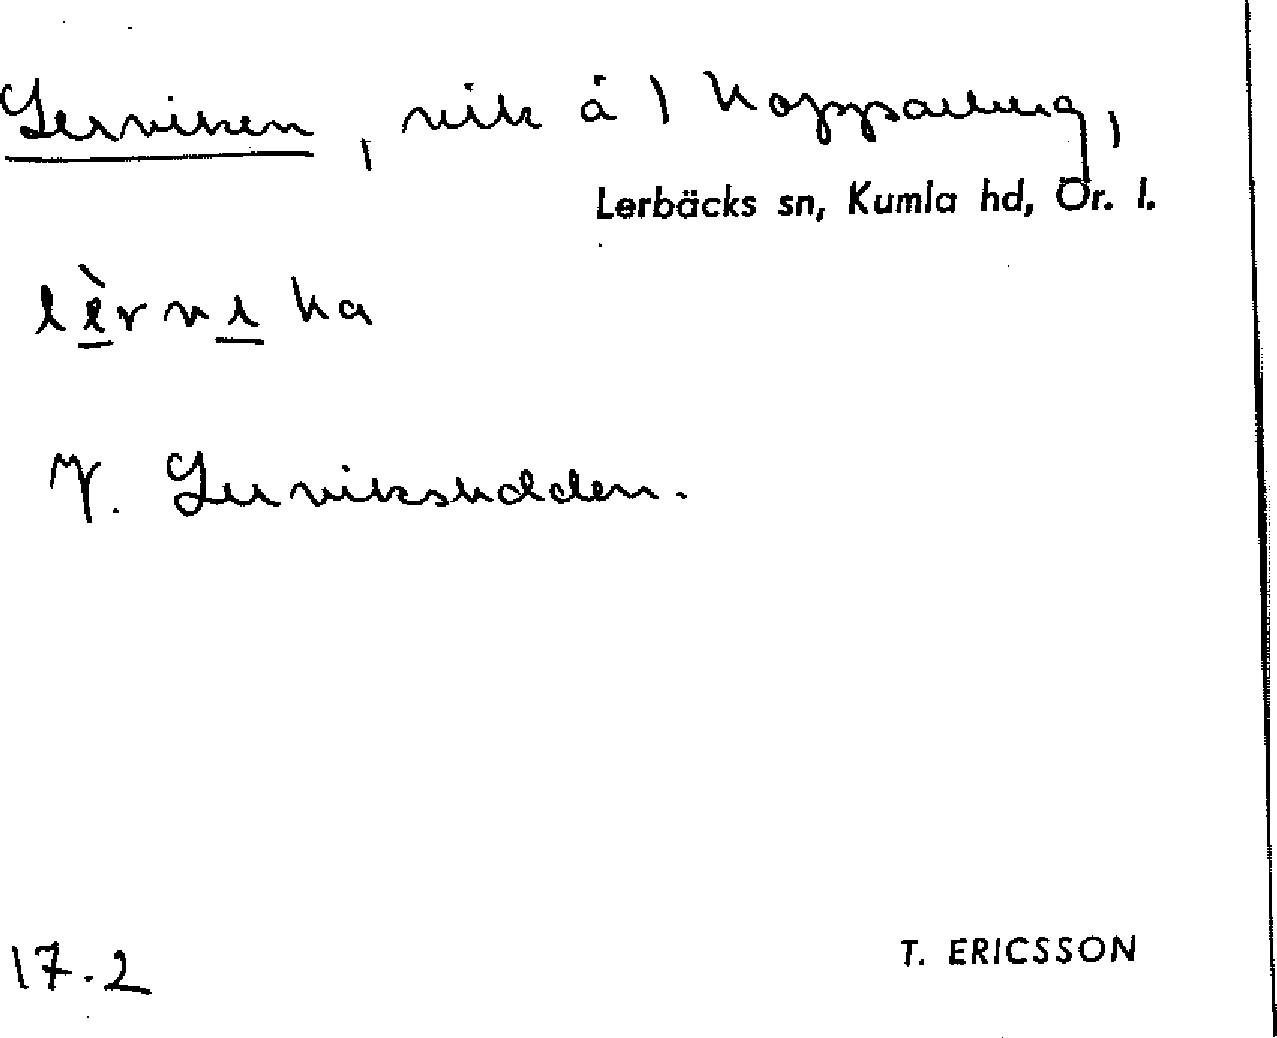 Lerviken, vik å 1 Kopparberg,
Lerbäcks sn, Kumla hd, Ör. l.
lèrvika
Lerviksudden.
17.2
T. ERICSSON